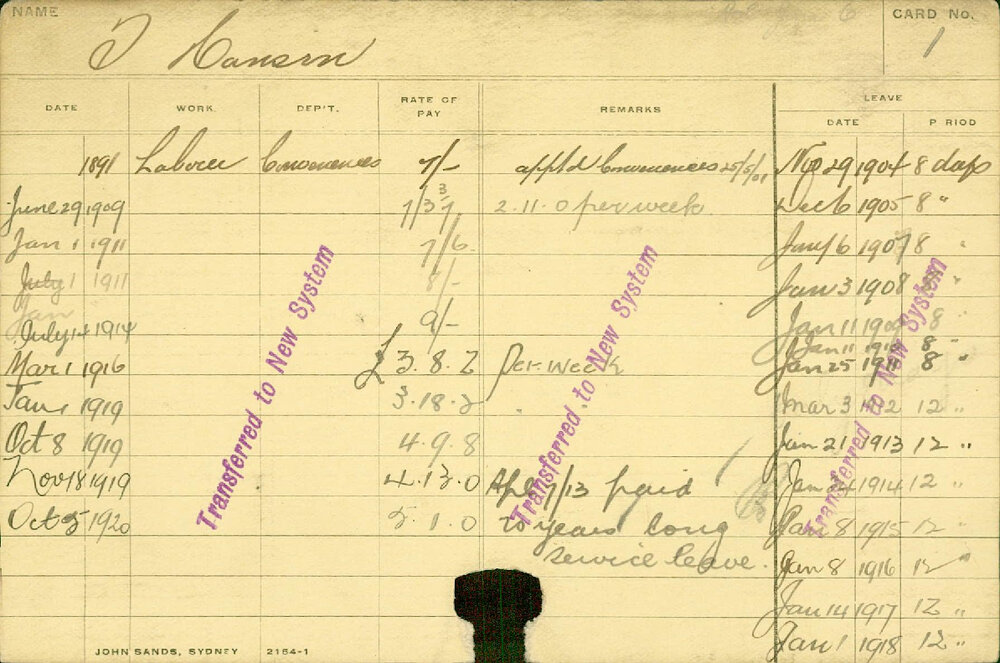 NAME
CARD No.
T Hansen
1
DATE WORK DEP'T. RATE OF PAY REMARKS LEAVE
DATE P RIOD
1891 Labourer Conveniences 7/- appt'd Conveniences 25/5/01 Nov 29 1904 8 days
June 29 1909 7/3 2.11.0 per week Dec 6 1905 8 "
Jan 1 1911 7/6 Jany 6 1907 8 "
July 1 1911 8/- Jan 3 1908 8 "
Jan
Jan 11 1909 8
July 14 1914 9/- Jan 11 1910 8 "
Mar 1 1916 £3.8.2 Per week Jan 25 1911 8 "
Jan 1 1919 3.18.2 Mar 3 1912 12 "
Oct 8 1919 4.9.8 Jan 21 1913 12 "
Nov 18 1919 4.13.0 7/13 paid Jan 1914 12 "
Oct 5 1920 5.1.0 20 years long Jan 8 1915 12 "
service leave. Jan 8 1916 12 "
Jan 14 1917 12 "
Jan 1 1918 12 "
Transferred to New System
Transferred to New System
Transferred to New System
JOHN SANDS, SYDNEY 2164-1